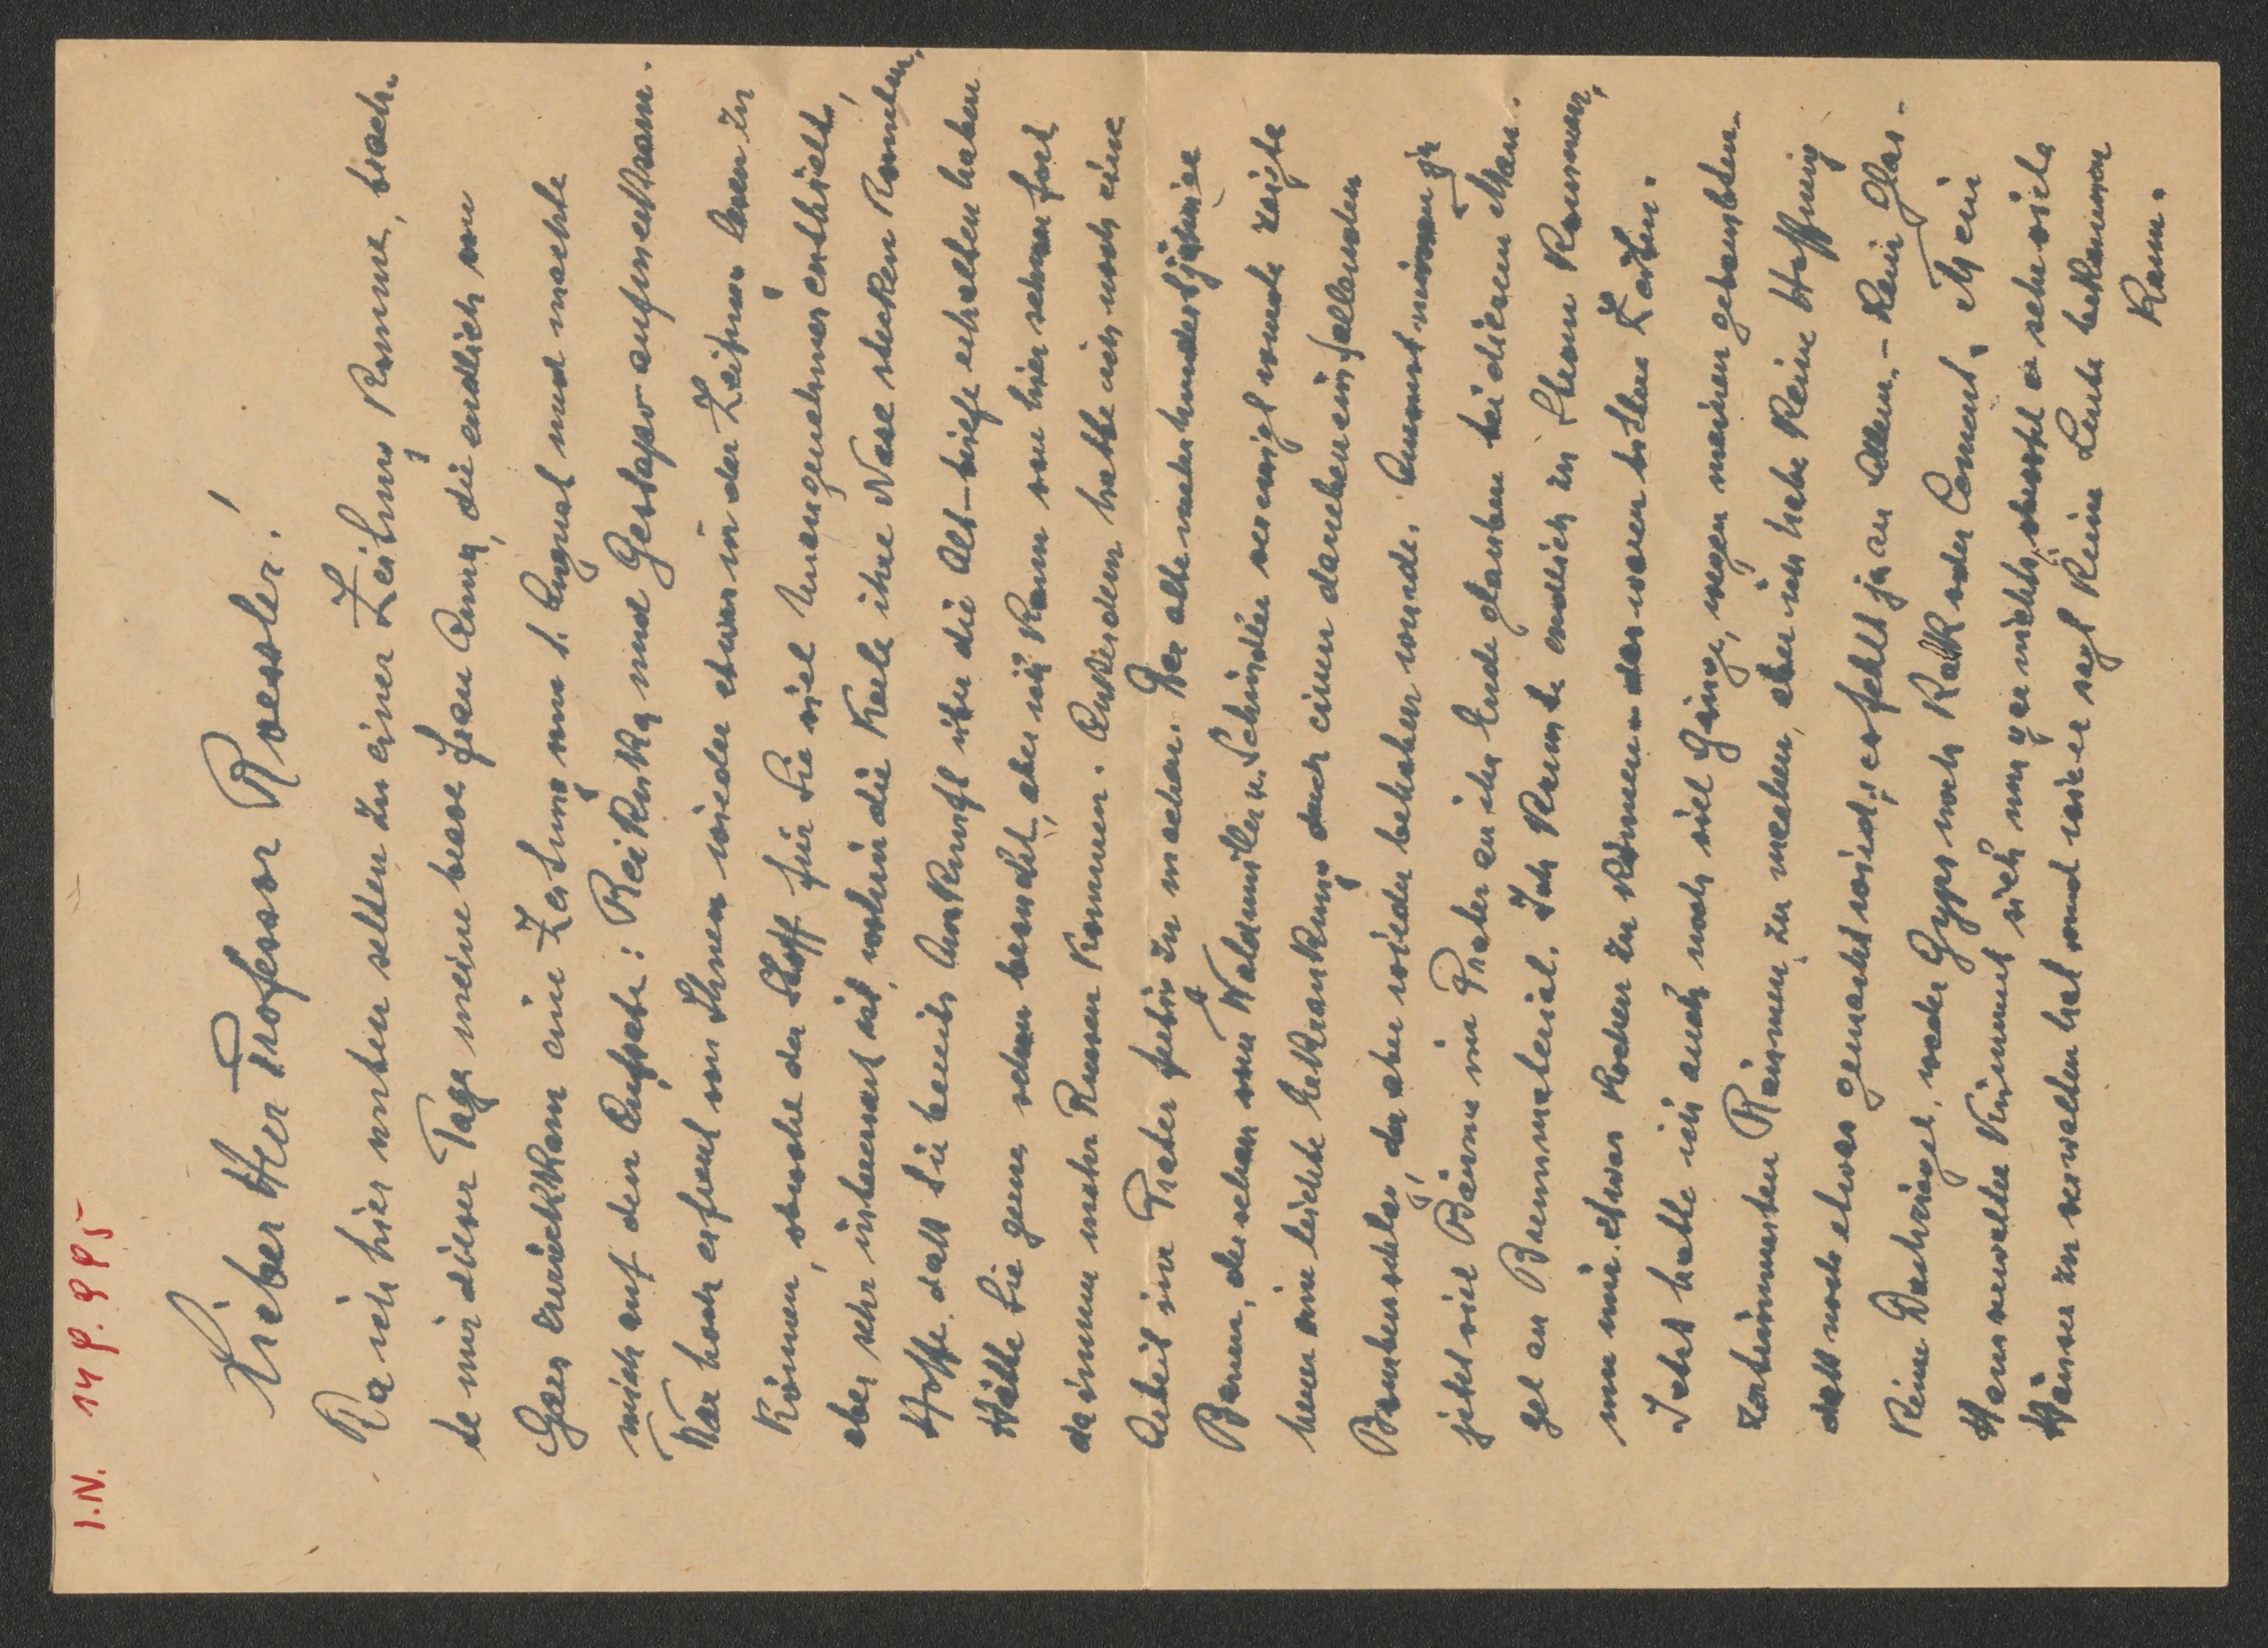 I.N. 148.985
Lieber Herr Professor Roessler!
Da ich hier unten selten zu einer Zeitung komme, brach-
te mir dieser Tage meine brave Frau Anna, die endlich von
Gars zurückkam eine Zeitung vom 1. August und machte
mich auf den Aufsatz: Reikuska und Gestapo aufmerksam.
War hoch erfreut von Ihnen wieder etwas in der Zeitung lesen zu
können, obwohl der Stoff für Sie viel Unangenehmes enthielt,
aber sehr interessant ist, wohin die Kerle ihre Nase stecken konnten.
Hoffe, dass Sie bereits Auskunft über die Alt-briefe erhalten haben
Hätte Sie gerne schon besucht, aber ich kann von hier schwer fort
da immer mehr Russen kommen. Ausserdem hatte ich noch eine
Arbeit im Prater fertig zu machen. Der alte mehrhundertjährige
Baum, der schon von Waldmüller u. Schindler verewigt wurde zeigte
heuer eine leichte Erkrankung durch einen daneben einfallenden
Bombenschlag, der aber wieder behoben wurde. Ansonst nimmt ja
jetzt viel Bäume im Prater an ihr Ende glauben bei diesem Man-
gel an Brennmaterial. Ich konnte endlich zu Strom kommen,
um mir etwas kochen zu können das waren böse Zeiten.
Jetzt hatte ich auch noch viel Gänge, wegen meinen gebombten
zertrümmerten Räumen zu machen, aber ich habe keine Hoffnung
dass noch etwas gemacht wird; es fehlt ja an Allem, - kein Glas -
keine Dachziegel, weder Gyps noch Kalk oder Cement. Mein
Hausverwalter kümmert sich um gar nichts, obwohl er sehr viele
Häuser zu verwalten hat und wie er sagt keine Leute bekommen
kann.